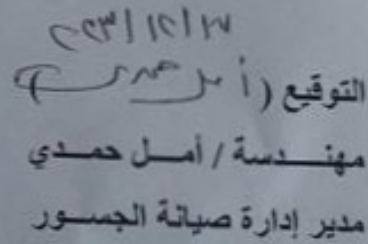 ٢٠٢٣/١٢/١٧
التوقيع (أمل حمدي)
مهندسة / أمل حمدي
مدير إدارة صيانة الجسور